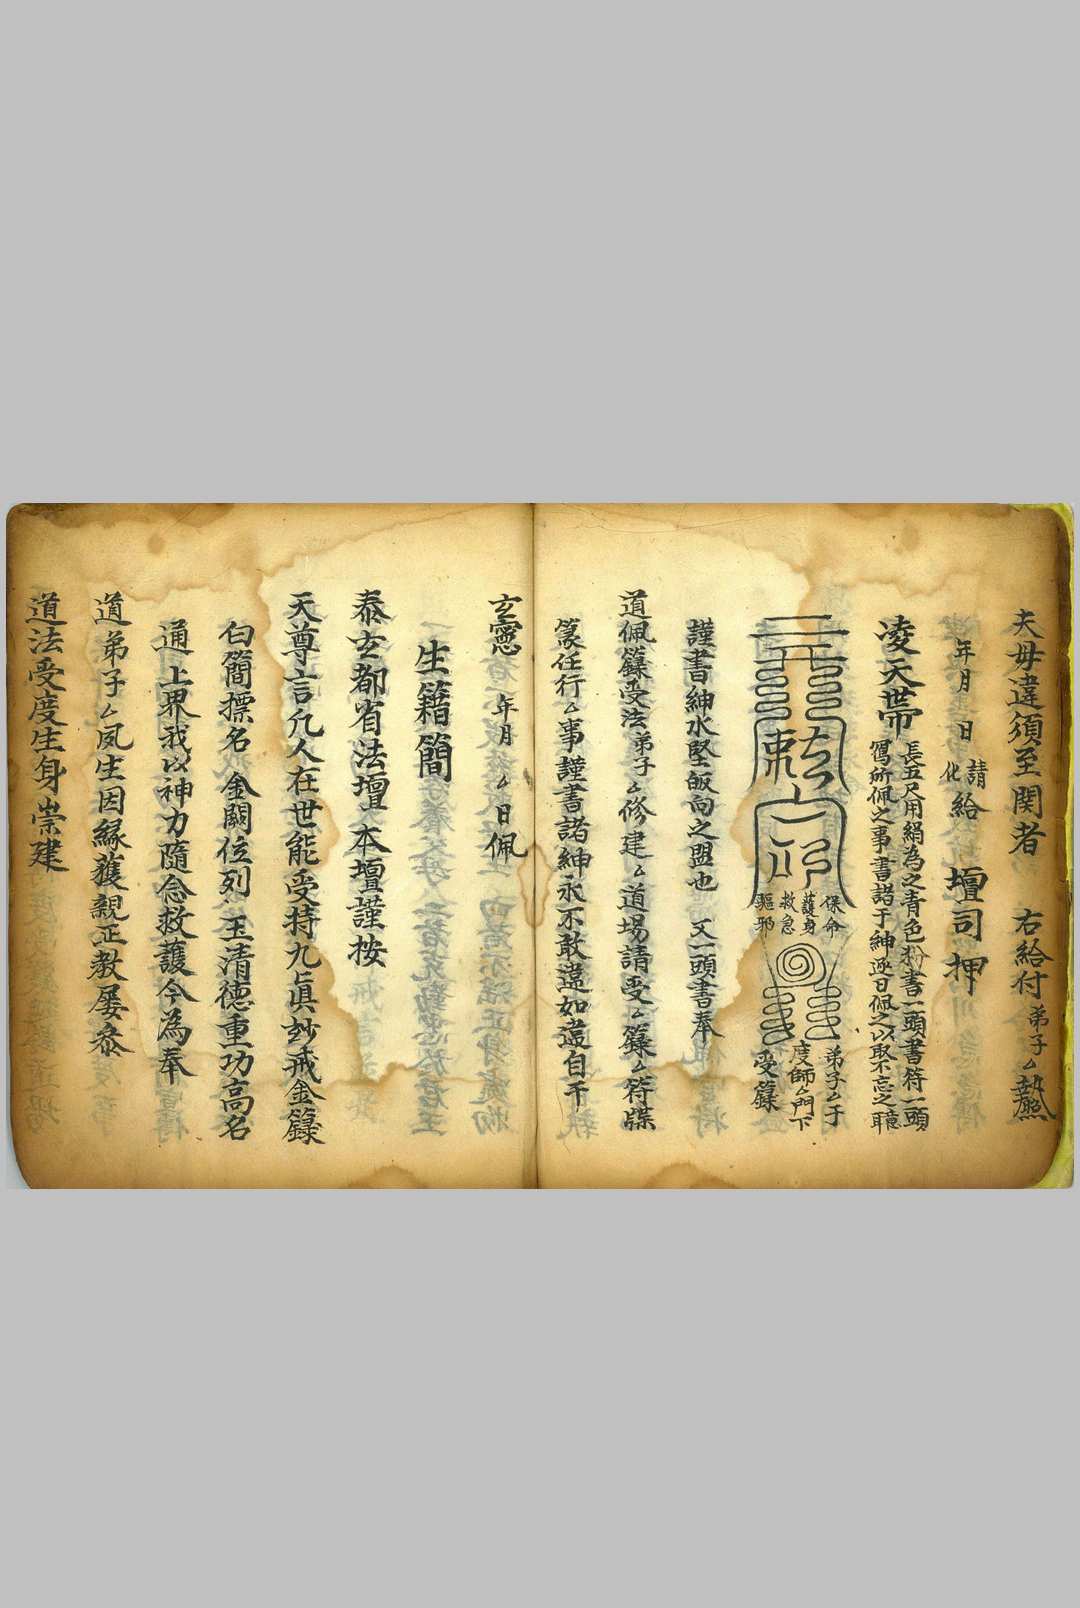 夫毋違須至関者　右給付弟子厶𤍠
年月　日請化給　壇司押
凌天帶
長五尺用絹為之青色粉書一頭書符一頭
寫所佩之事書諸于紳逐日佩之以取不忘之聽
敕
保命
護身
救急
驅邪
弟子厶于
度師厶門下
受籙
謹書紳永堅皈向之盟也　又一頭書奉
道佩籙受法弟子厶修建厶道場請受厶籙厶符牒
篆任行厶事謹書諸紳永不敢違如違自干
玄憲　年月　厶日佩
生籍簡
泰玄都省法壇　本壇謹按
天尊言凡人在世能受持九真妙戒金籙
白簡摽名　金闕位列　玉清德重功高名
通上界我以神力隨念救護今為奉
道弟子厶夙生因緣獲親正教屡叅
道法受度生身崇建